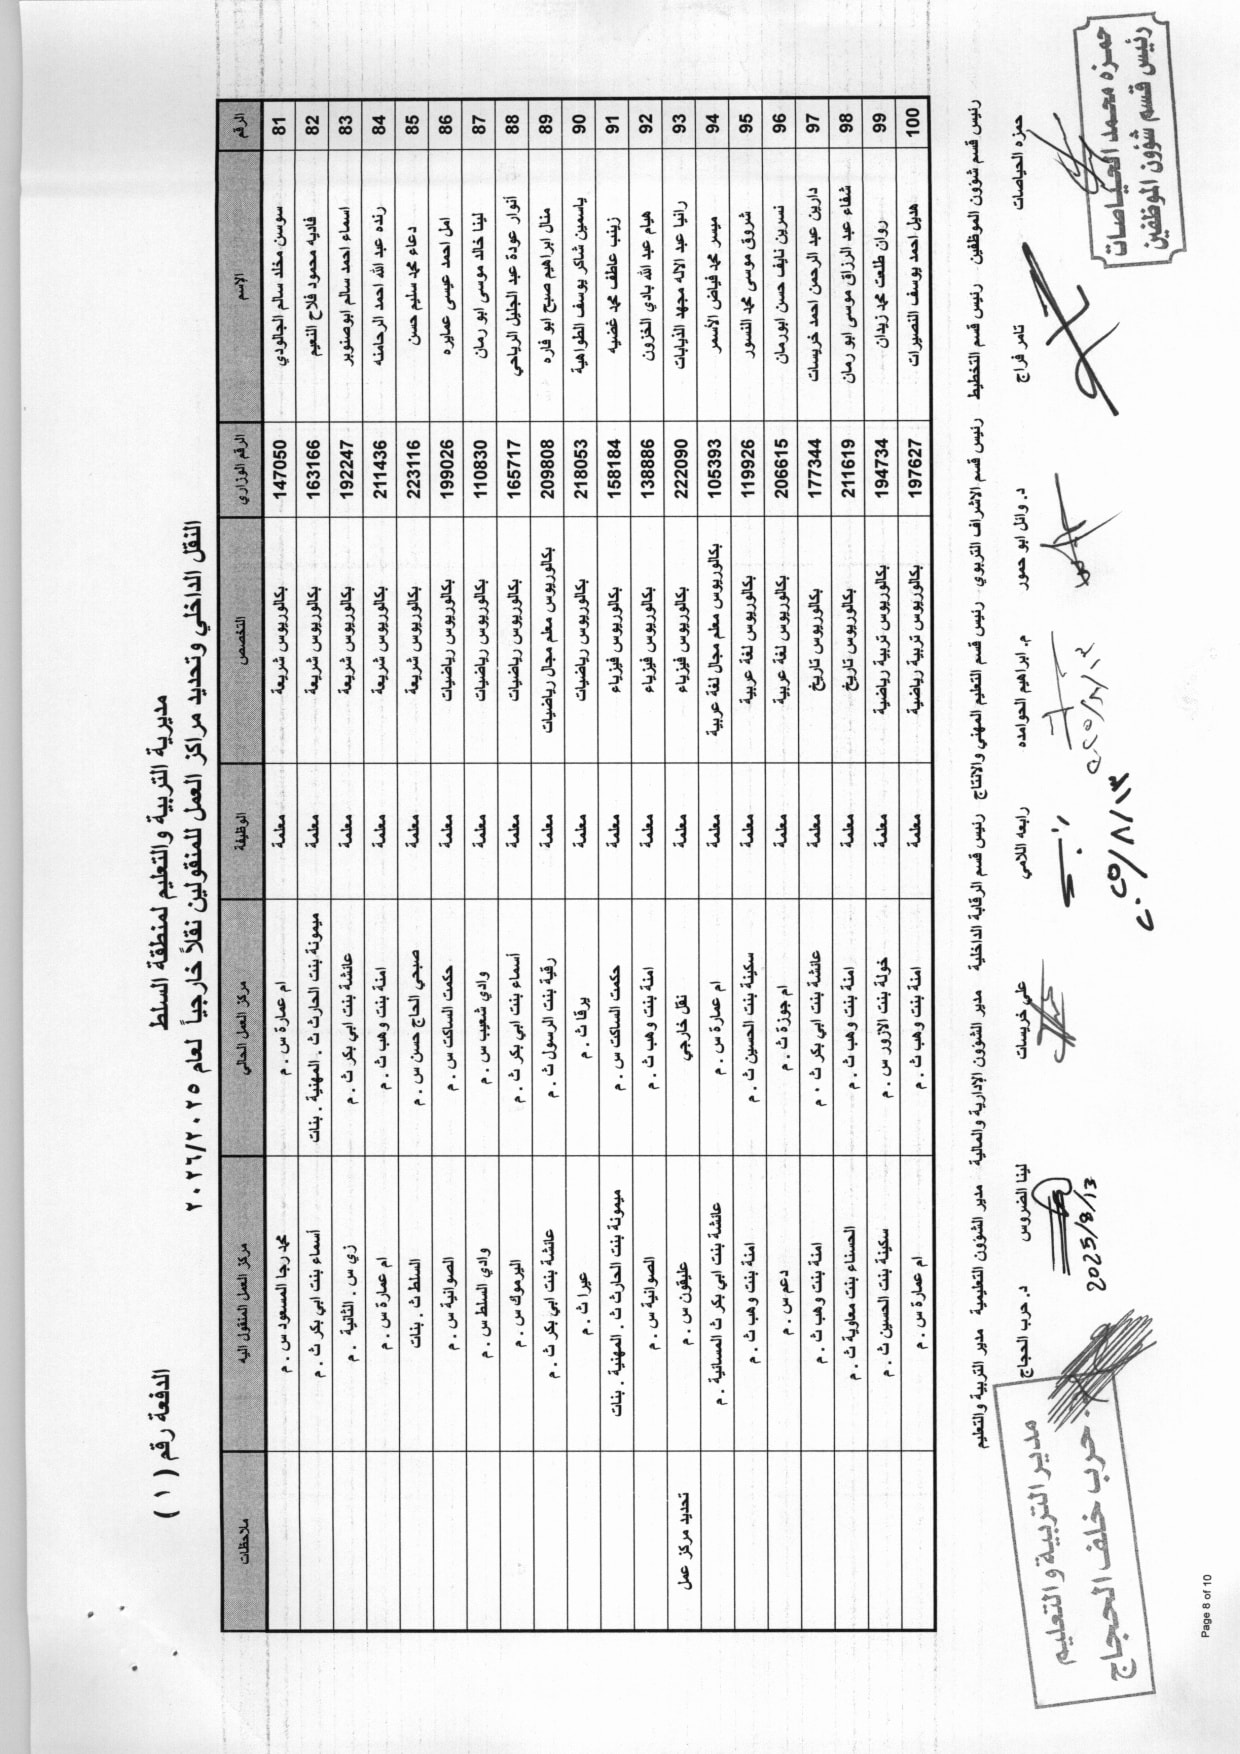 مديرية التربية والتعليم لمنطقة السلط
الدفعة رقم ( ١ )
النقل الداخلي وتحديد مراكز العمل للمنقولين نقلاً خارجياً لعام ٢٠٢٦/٢٠٢٥
الرقم الإسم الرقم الوزاري التخصص الوظيفة مركز العمل الحالي مركز العمل المنقول اليه ملاحظات
81 سوسن مخلد سالم الجالودي 147050 بكالوريوس شريعة معلمة ام عمارة س . م محمد رجا المسعود س . م
82 فاديه محمود فلاح النعيم 163166 بكالوريوس شريعة معلمة ميمونة بنت الحارث ث . المهنية . بنات أسماء بنت ابي بكر ث . م
83 اسماء احمد سالم ابوصنوبر 192247 بكالوريوس شريعة معلمة عائشة بنت ابي بكر ث . م زي س . الثانية . م
84 رنده عبد الله احمد الرحامنه 211436 بكالوريوس شريعة معلمة امنة بنت وهب ث . م ام عمارة س . م
85 دعاء محمد سليم حسن 223116 بكالوريوس شريعة معلمة صبحي الحاج حسن س . م السلط ث . بنات
86 امل احمد عيسى عمايره 199026 بكالوريوس رياضيات معلمة حكمت الساكت س . م الصوانية س . م
87 لينا خالد موسى ابو رمان 110830 بكالوريوس رياضيات معلمة وادي شعيب س . م وادي السلط س . م
88 أنوار عودة عبد الجليل الرياحي 165717 بكالوريوس رياضيات معلمة أسماء بنت ابي بكر ث . م اليرموك س . م
89 منال ابراهيم صبح ابو فاره 209808 بكالوريوس معلم مجال رياضيات معلمة رقية بنت الرسول ث . م عائشة بنت ابي بكر ث . م
90 ياسمين شاكر يوسف الطواهية 218053 بكالوريوس رياضيات معلمة يرقا ث . م عيرا ث . م
91 زينب عاطف محمد غضيه 158184 بكالوريوس فيزياء معلمة حكمت الساكت س . م ميمونة بنت الحارث ث . المهنية . بنات
92 هيام عبد الله بادي الخزون 138886 بكالوريوس فيزياء معلمة امنة بنت وهب ث . م الصوانية س . م
93 رانيا عبد الاله مجهد الذيابات 222090 بكالوريوس فيزياء معلمة نقل خارجي عليقون س . م تحديد مركز عمل
94 ميسر محمد فياض الأسمر 105393 بكالوريوس معلم مجال لغة عربية معلمة ام عمارة س . م عائشة بنت ابي بكر ث المسائية . م
95 شروق موسى محمد النسور 119926 بكالوريوس لغة عربية معلمة سكينة بنت الحسين ث . م امنة بنت وهب ث . م
96 نسرين نايف حسن ابورمان 206615 بكالوريوس لغة عربية معلمة ام جوزة ث . م دعم س . م
97 دارين عبد الرحمن احمد خريسات 177344 بكالوريوس تاريخ معلمة عائشة بنت ابي بكر ث . م امنة بنت وهب ث . م
98 شفاء عبد الرزاق موسى ابو رمان 211619 بكالوريوس تاريخ معلمة امنة بنت وهب ث . م الحسناء بنت معاوية ث . م
99 روان طلعت محمد زيدان 194734 بكالوريوس تربية رياضية معلمة خولة بنت الازور س . م سكينة بنت الحسين ث . م
100 هديل احمد يوسف النصيرات 197627 بكالوريوس تربية رياضية معلمة امنة بنت وهب ث . م ام عمارة س . م
رئيس قسم شؤون الموظفين رئيس قسم التخطيط رئيس قسم الاشراف التربوي رئيس قسم التعليم المهني والانتاج رئيس قسم الرقابة الداخلية مدير الشؤون الإدارية والمالية مدير الشؤون التعليمية مدير التربية والتعليم
حمزه الحياصات تامر فراج د. وائل ابو حمور م. ابراهيم الحوامده رابعه اللامي علي خريسات لينا الضروس د. حرب الحجاج
حمزه محمد الحياصات
رئيس قسم شؤون الموظفين
٢٠٢٥/٨/١٣
٢٠٢٥/٨/١٣
2025/8/13
مدير التربية و التعليم
. حرب خلف الحجاج
Page 8 of 10